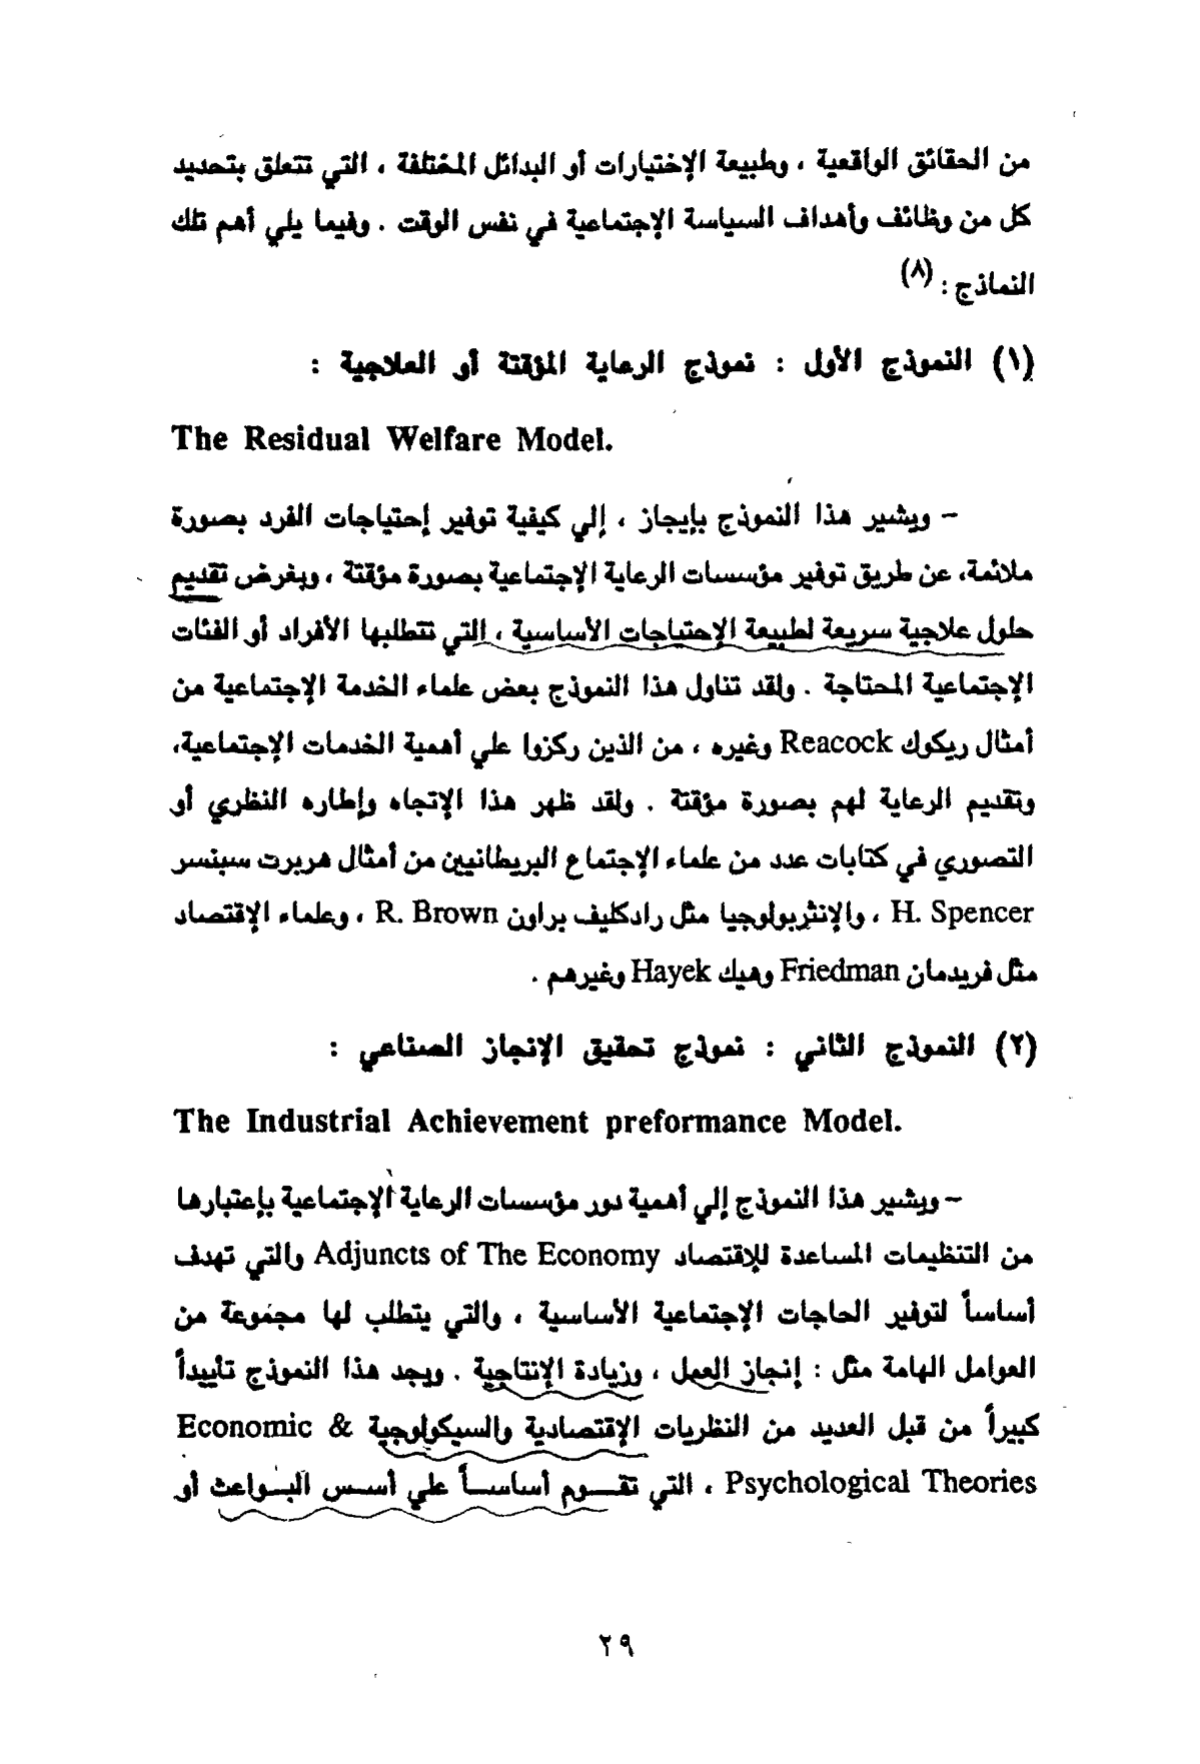 من الحقائق الواقعية ، وطبيعة الإختيارات أو البدائل المختلفة ، التي تتعلق بتحديد
كل من وظائف وأهداف السياسة الإجتماعية في نفس الوقت . وفيما يلي أهم تلك
النماذج : (٨)
(١) النموذج الأول : نموذج الرعاية المؤقتة أو العلاجية :
The Residual Welfare Model.
– ويشير هذا النموذج بإيجاز ، إلي كيفية توفير إحتياجات الفرد بصورة
ملائمة، عن طريق توفير مؤسسات الرعاية الإجتماعية بصورة مؤقتة ، وبغرض تقديم
حلول علاجية سريعة لطبيعة الإحتياجات الأساسية ، التي تتطلبها الأفراد أو الفئات
الإجتماعية المحتاجة . ولقد تناول هذا النموذج بعض علماء الخدمة الإجتماعية من
أمثال ريكوك Reacock وغيره ، من الذين ركزوا علي أهمية الخدمات الإجتماعية،
وتقديم الرعاية لهم بصورة مؤقتة . ولقد ظهر هذا الإتجاه وإطاره النظري أو
التصوري في كتابات عدد من علماء الإجتماع البريطانيين من أمثال هربرت سبنسر
H. Spencer ، والإنثربولوجيا مثل رادكليف براون R. Brown ، وعلماء الإقتصاد
مثل فريدمان Friedman وهيك Hayek وغيرهم .
(٢) النموذج الثاني : نموذج تحقيق الإنجاز الصناعي :
The Industrial Achievement preformance Model.
– ويشير هذا النموذج إلي أهمية دور مؤسسات الرعاية الإجتماعية بإعتبارها
من التنظيمات المساعدة للإقتصاد Adjuncts of The Economy والتي تهدف
أساساً لتوفير الحاجات الإجتماعية الأساسية ، والتي يتطلب لها مجموعة من
العوامل الهامة مثل : إنجاز العمل ، وزيادة الإنتاجية . ويجد هذا النموذج تأييداً
كبيراً من قبل العديد من النظريات الإقتصادية والسيكولوجية Economic &
Psychological Theories ، التي تقــوم أساســاً علي أســس البــواعث أو
٢٩